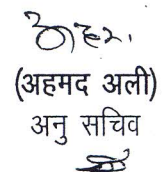 (अहमद अली)
अनु सचिव